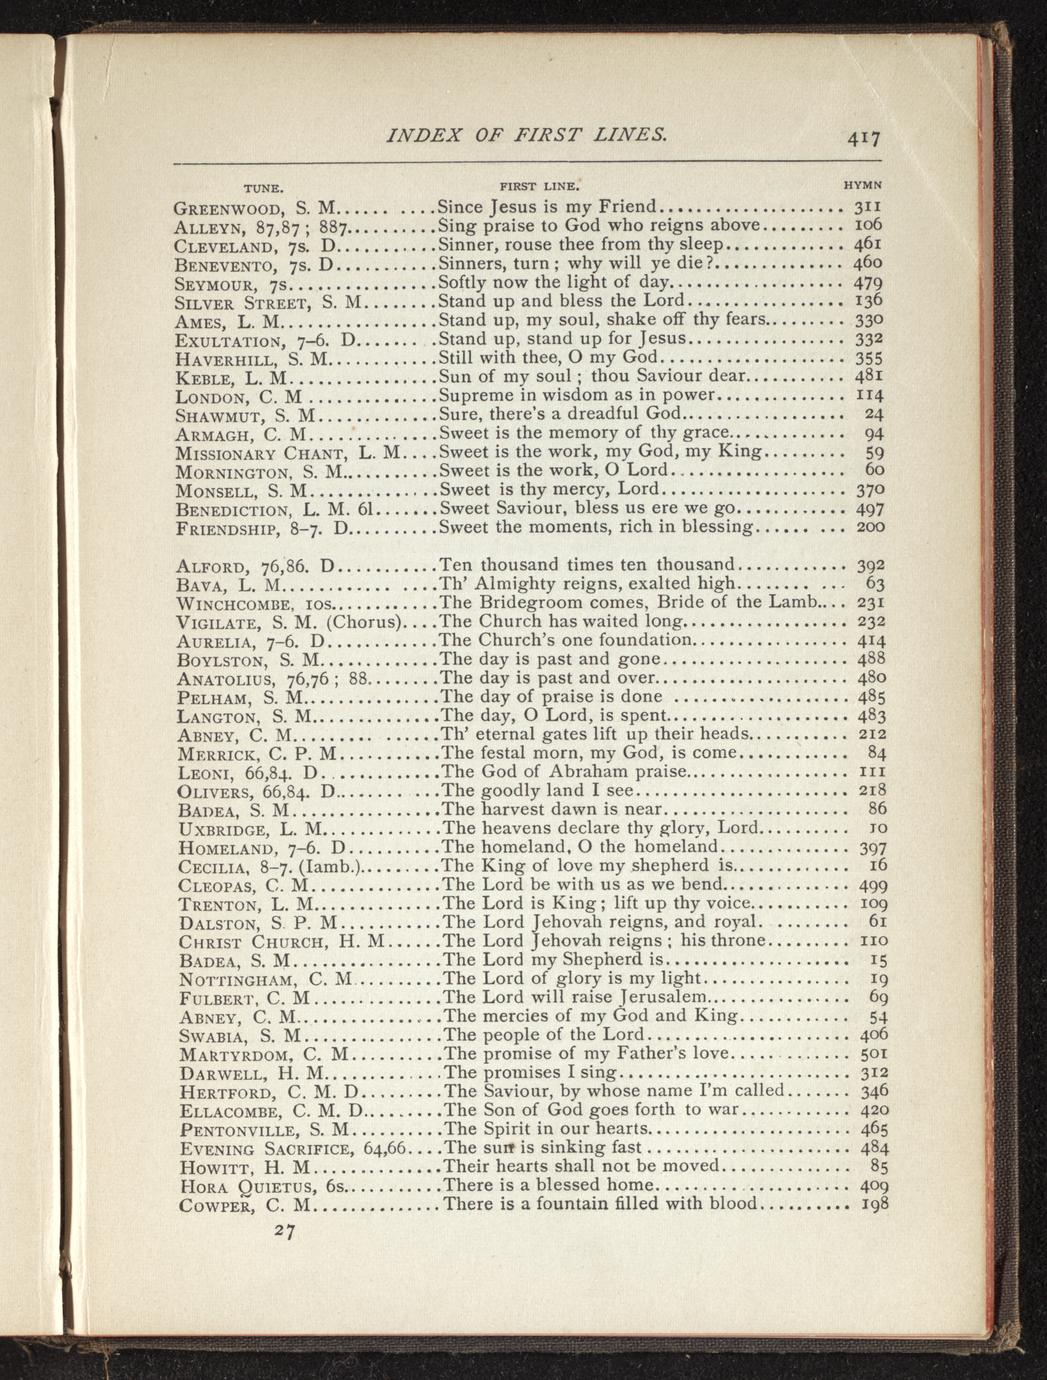 INDEX OF FIRST LINES. 417
TUNE. FIRST LINE. HYMN
GREENWOOD, S. M...... ....Since Jesus is my Friend................... 311
ALLEYN, 87,87 ; 887.........Sing praise to God who reigns above......... 106
CLEVELAND, 7s. D..........Sinner, rouse thee from thy sleep............ 461
BENEVENTO, 7s. D..........Sinners, turn ; why will ye die ?............. 460
SEYMOUR, 7s...............Softly now the light of day.................. 479
SILVER STREET, S. M........Stand up and bless the Lord................ 136
AMES, L. M................Stand up, my soul, shake off thy fears......... 330
EXULTATION, 7–6. D....... .Stand up, stand up for Jesus................ 332
HAVERHILL, S. M...........Still with thee, O my God................... 355
KEBLE, L. M...............Sun of my soul ; thou Saviour dear........... 481
LONDON, C. M .............Supreme in wisdom as in power............. 114
SHAWMUT, S. M............Sure, there's a dreadful God................. 24
ARMAGH, C. M.............Sweet is the memory of thy grace............ 94
MISSIONARY CHANT, L. M....Sweet is the work, my God, my King......... 59
MORNINGTON, S. M..........Sweet is the work, O Lord.................. 60
MONSELL, S. M.............Sweet is thy mercy, Lord................... 370
BENEDICTION, L. M. 6l.......Sweet Saviour, bless us ere we go............ 497
FRIENDSHIP, 8–7. D.........Sweet the moments, rich in blessing...... ... 200
ALFORD, 76,86. D...........Ten thousand times ten thousand............ 392
BAVA, L. M............ ....Th' Almighty reigns, exalted high........ ... 63
WINCHCOMBE, 10s...........The Bridegroom comes, Bride of the Lamb.... 231
VIGILATE, S. M. (Chorus)....The Church has waited long................. 232
AURELIA, 7–6. D...........The Church's one foundation................ 414
BOYLSTON, S. M............The day is past and gone................... 488
ANATOLIUS, 76,76 ; 88........The day is past and over.................... 480
PELHAM, S. M..............The day of praise is done .................. 485
LANGTON, S. M.............The day, O Lord, is spent.................. 483
ABNEY, C. M......... ......Th' eternal gates lift up their heads.......... 212
MERRICK, C. P. M..........The festal morn, my God, is come........... 84
LEONI, 66,84. D............The God of Abraham praise................. 111
OLIVERS, 66,84. D..........The goodly land I see...................... 218
BADEA, S. M...............The harvest dawn is near................... 86
UXBRIDGE, L. M............The heavens declare thy glory, Lord......... 10
HOMELAND, 7–6. D.........The homeland, O the homeland............. 397
CECILIA, 8–7. (Iamb.).........The King of love my shepherd is............ 16
CLEOPAS, C. M.............The Lord be with us as we bend............. 499
TRENTON, L. M.............The Lord is King ; lift up thy voice.......... 109
DALSTON, S. P. M...........The Lord Jehovah reigns, and royal. ........ 61
CHRIST CHURCH, H. M......The Lord Jehovah reigns ; his throne......... 110
BADEA, S. M...............The Lord my Shepherd is................... 15
NOTTINGHAM, C. M.........The Lord of glory is my light............... 19
FULBERT, C. M.............The Lord will raise Jerusalem............... 69
ABNEY, C. M...............The mercies of my God and King........... 54
SWABIA, S. M..............The people of the Lord..................... 406
MARTYRDOM, C. M..........The promise of my Father's love............ 501
DARWELL, H. M............The promises I sing........................ 312
HERTFORD, C. M. D.........The Saviour, by whose name I'm called....... 346
ELLACOMBE, C. M. D........The Son of God goes forth to war........... 420
PENTONVILLE, S. M..........The Spirit in our hearts..................... 465
EVENING SACRIFICE, 64,66....The sun is sinking fast ..................... 484
HOWITT, H. M.............Their hearts shall not be moved............. 85
HORA QUIETUS, 6s..........There is a blessed home.................... 409
COWPER, C. M..............There is a fountain filled with blood.......... 198
27